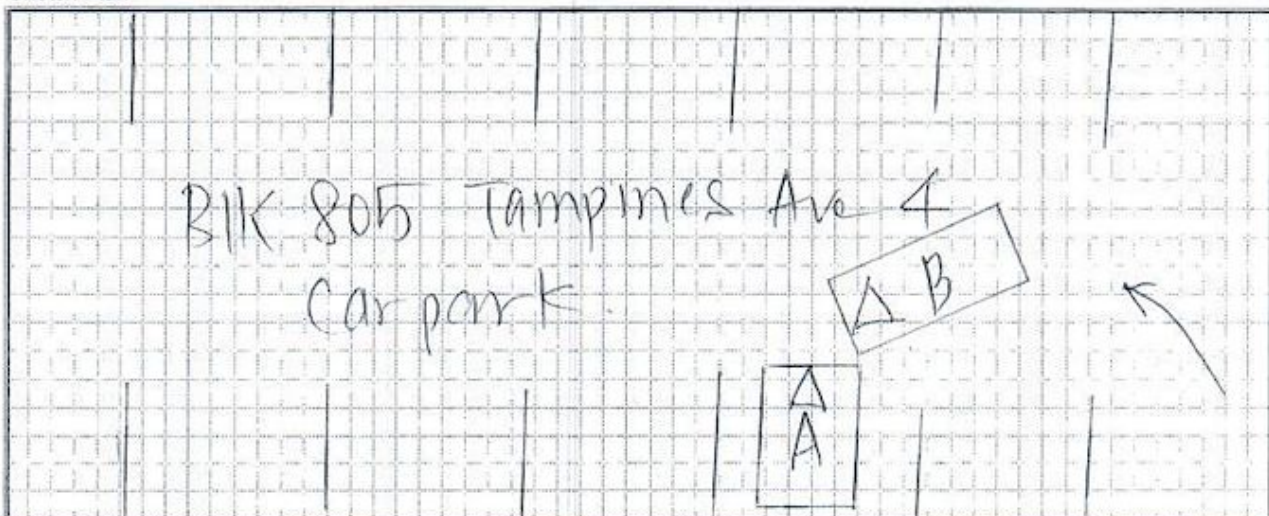 Blk 805 Tampines Ave 4
Carpark.
B
A